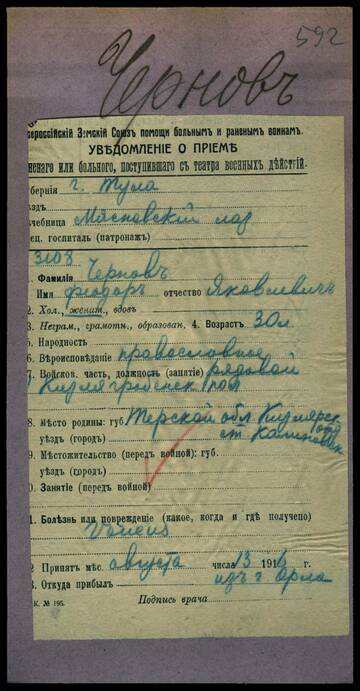 592
Черновъ
сероссійскій Земскій Союзъ помощи больнымъ и раненымъ воинамъ.
УВѢДОМЛЕНІЕ О ПРІЕМѢ
ненаго или больного, поступившаго съ театра военныхъ дѣйствій.
бернія г. Тула
ѣздъ
чебница Мясновскій лаз
ец. госпиталь (патронажъ)
3108
. Фамилія Черновъ
Имя Феодоръ отчество Яковлевичъ
2. Хол., женат., вдовъ
3. Неграм., грамотн., образован. 4. Возрастъ 30 л
5. Народность
6. Вѣроисповѣданіе православное
7. Войсков. часть, должность (занятіе) рядовой
8. Мѣсто родины: губ. Терской обл. Кизлярск
отд
уѣздъ (городъ) ст.
9. Мѣстожительство (передъ войной): губ.
уѣздъ (городъ)
0. Занятіе (передъ войной)
1. Болѣзнь или поврежденіе (какое, когда и гдѣ получено)
2 Принятъ мѣс. августа числа 13 1916
3. Откуда прибылъ изъ г Орла
К. № 195. Подпись врача